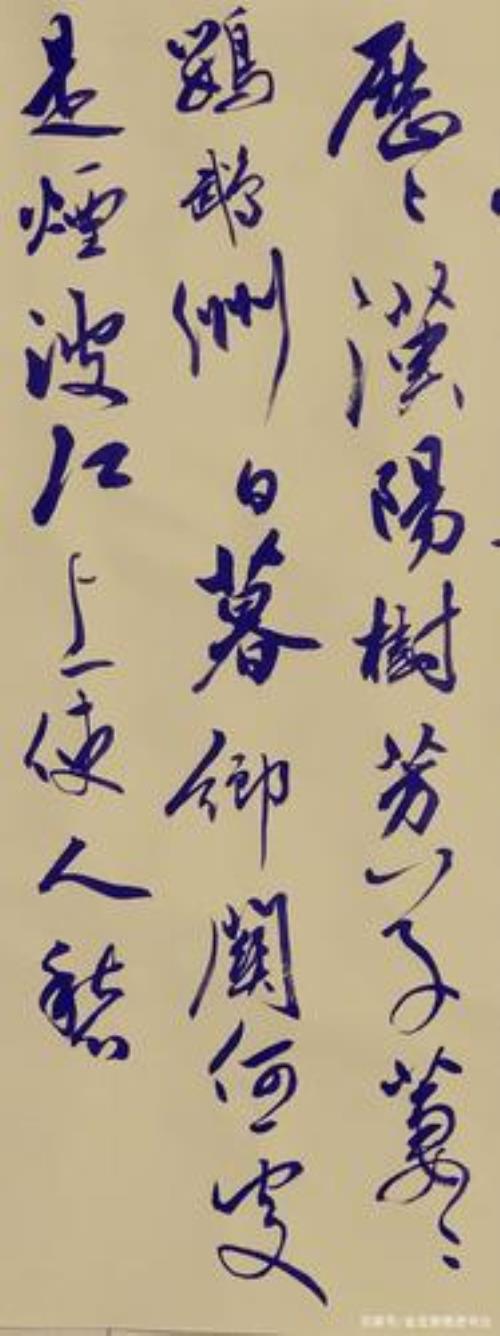 歷〻漢陽樹芳草萋〻
鸚鵡洲日暮鄉關何處
是煙波江上使人愁